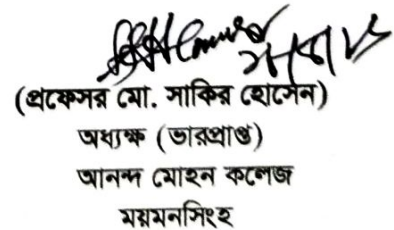 (প্রফেসর মো. সাকির হোসেন)
অধ্যক্ষ (ভারপ্রাপ্ত)
আনন্দ মোহন কলেজ
ময়মনসিংহ